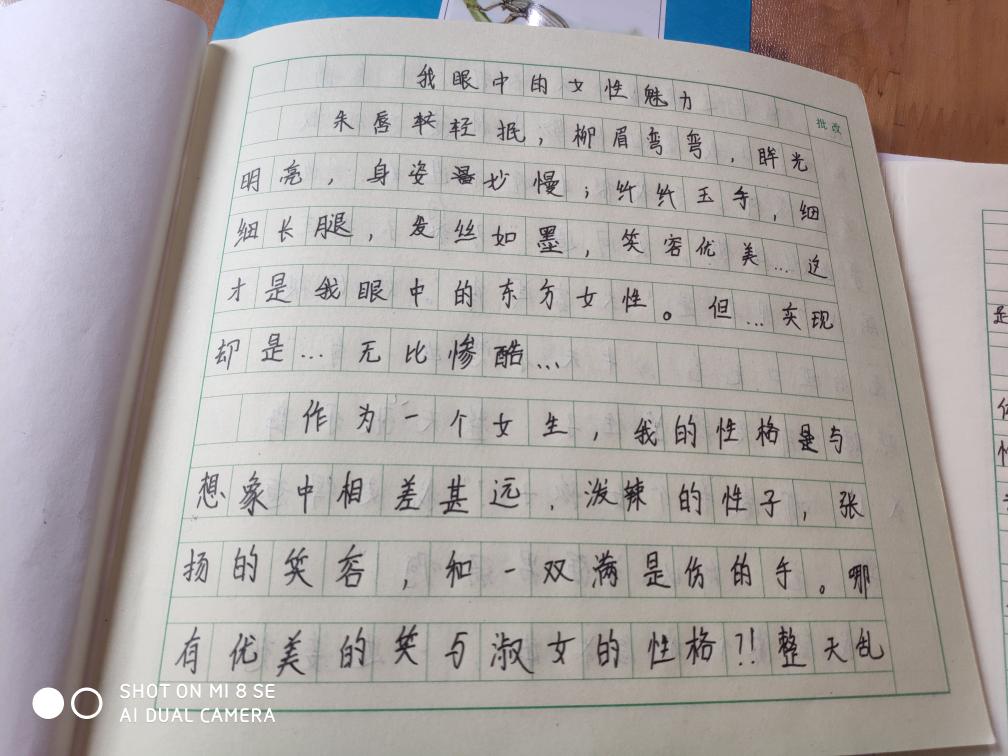 我眼中的女性魅力
批改
朱唇轻轻抿，柳眉弯弯，眸光
明亮，身姿曼妙慢；纤纤玉手，细
细长腿，发丝如墨，笑容优美…这
才是我眼中的东方女性。但…实现
却是…无比惨酷…
作为一个女生，我的性格是与
想象中相差甚远．泼辣的性子，张
扬的笑容，和一双满是伤的手。哪
有优美的笑与淑女的性格?!整天乱
SHOT ON MI 8 SE
AI DUAL CAMERA